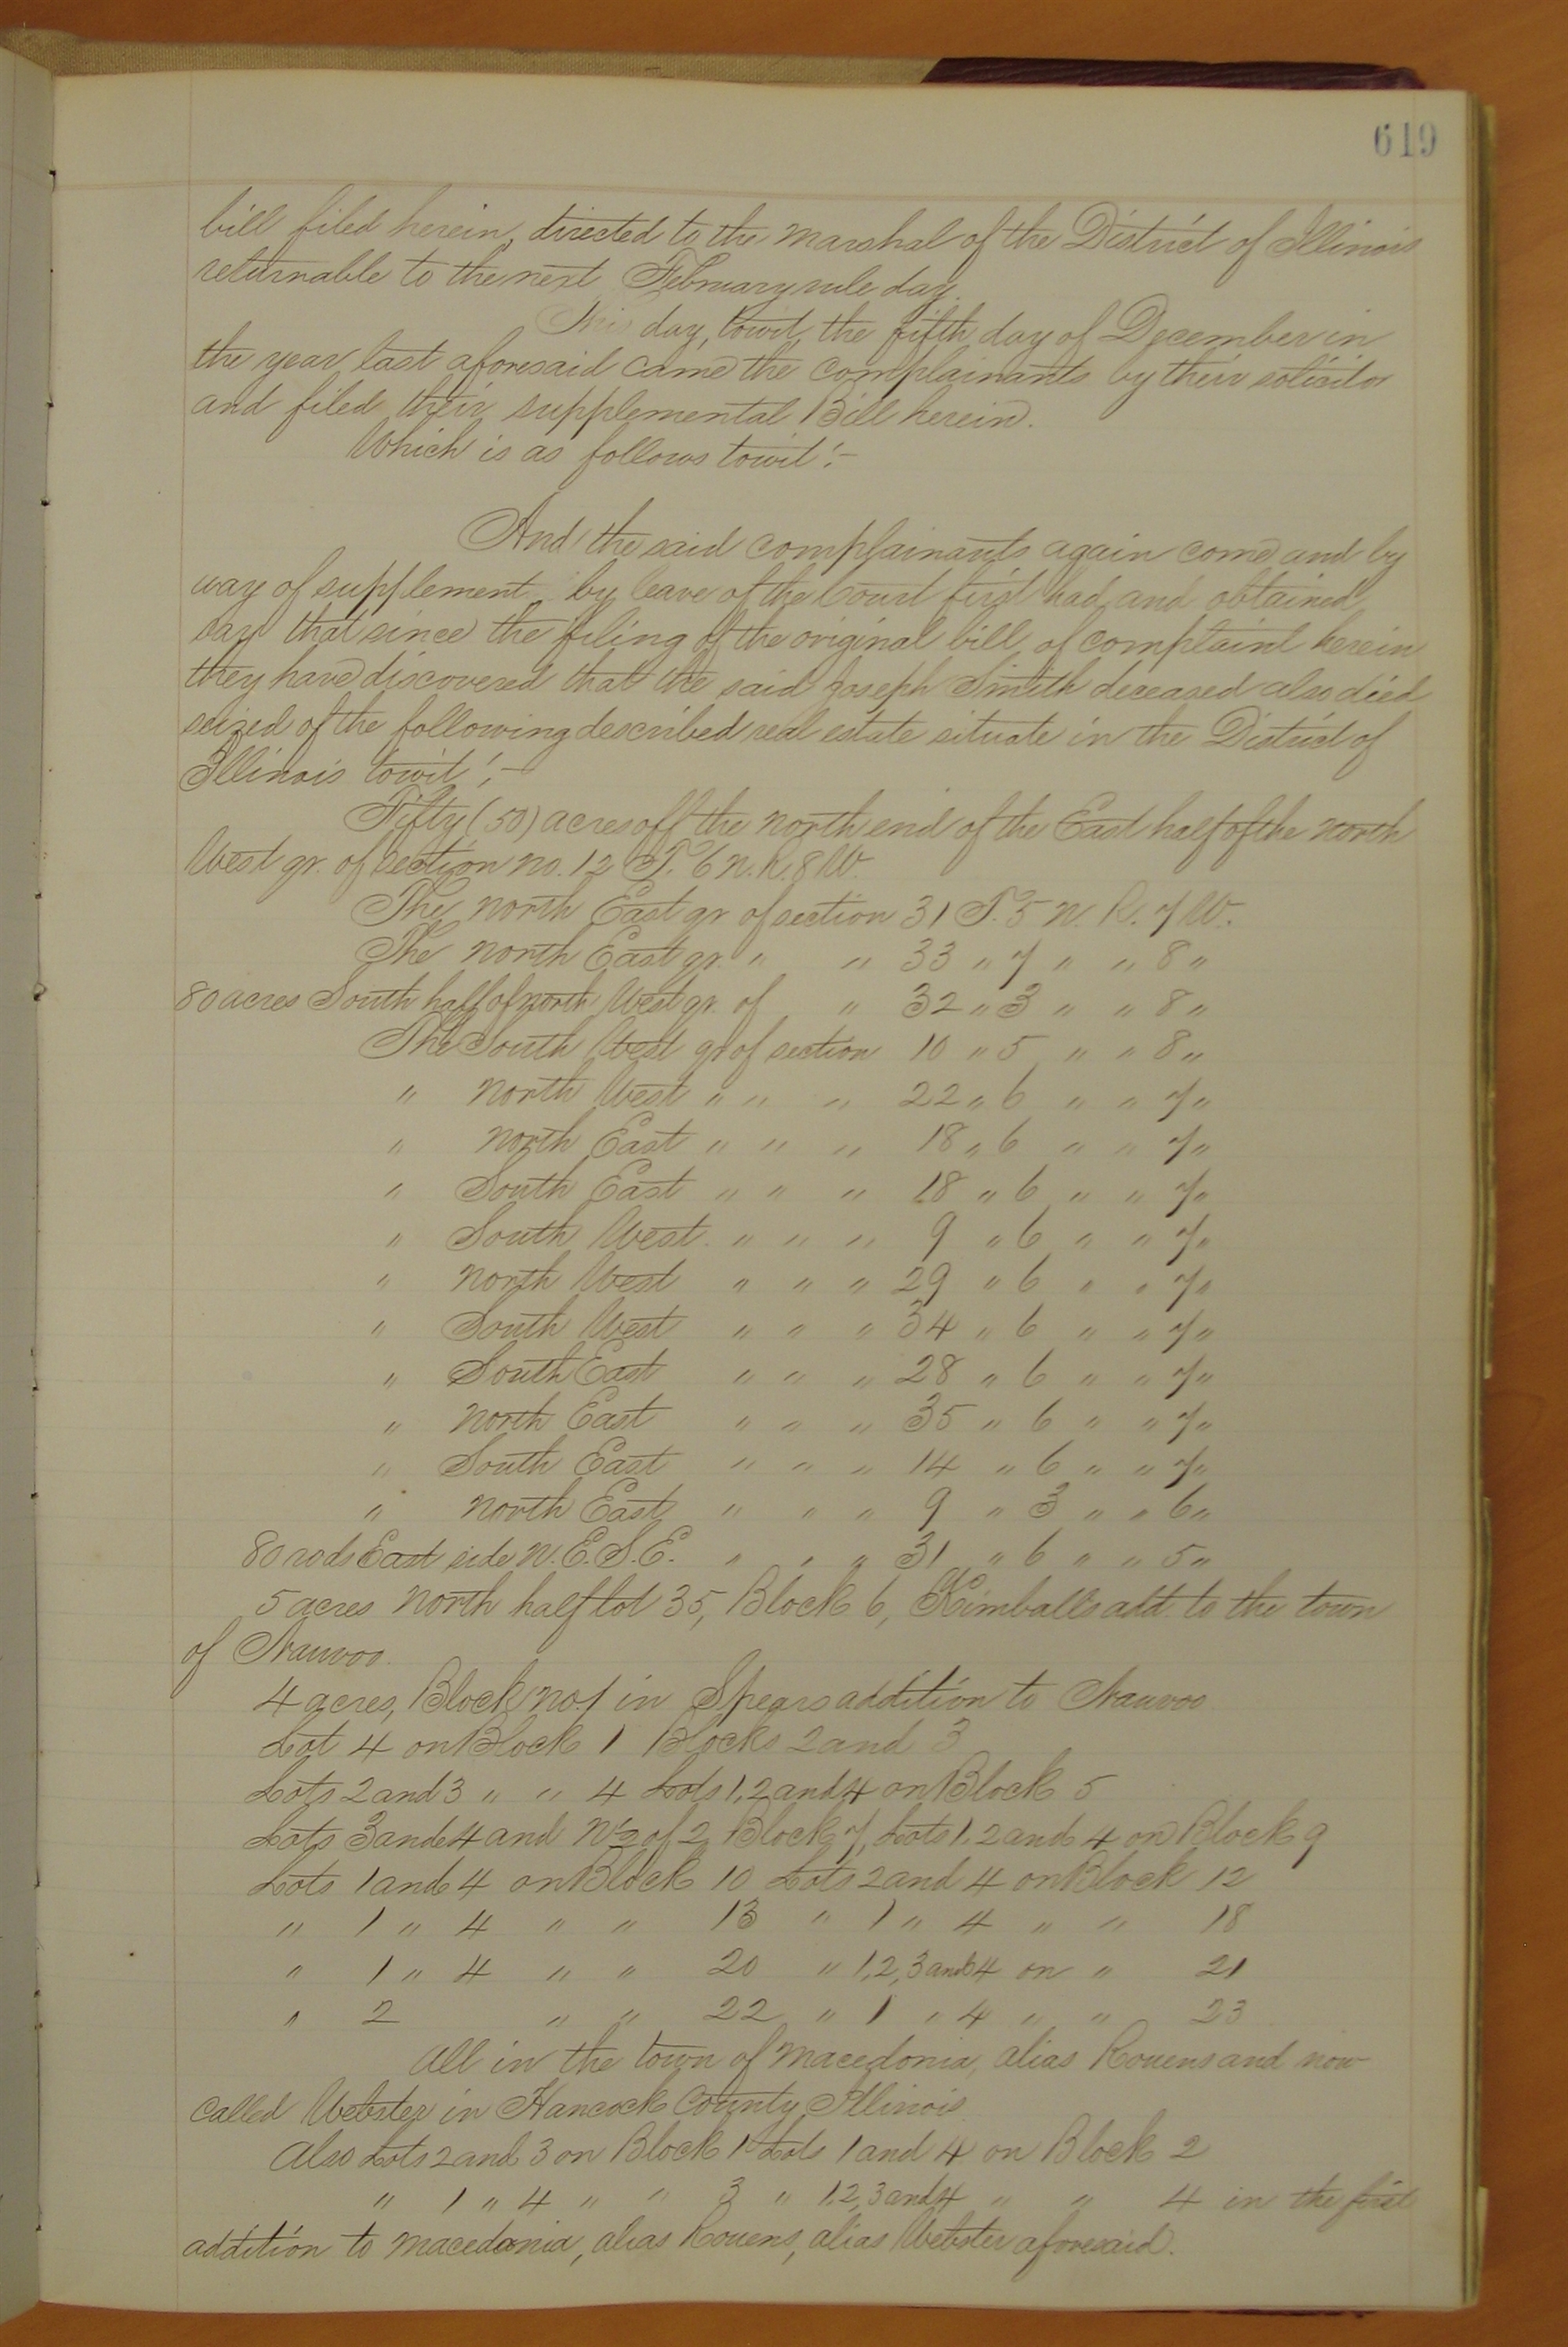 619
bill filed herein, directed to the Marshal of the District of Illinois
returnable to the next February rule day.
This day, towit, the fifth day of December in
the year last aforesaid came the complainants by their solicitor
and filed their supplemental Bill herein.
Which is as follows towit:-
And the said complainants again come and by
way of supplement by leave of the Court first had and obtained
say that since the filing of the original bill of complaint herein
they have discovered that the said Joseph Smith deceased also died
seized of the following described real estate situate in the District of
Illinois towit:-
Fifty (50) acres off the north end of the East half of the north
West qr. of section no. 12 T. 6 N. R. 8 W.
The north East qr of section 31 T. 5 N. R. 7 W.
The north East qr. " " 33 " 7 " " 8 "
80 acres South half of north West qr. of " 32 " 3 " " 8 "
The South West qr of section 10 " 5 " " 8 "
" north West " " " 22 " 6 " " 7 "
" north East " " " 18 " 6 " " 7 "
" South East " " " 18 " 6 " " 7 "
" South West " " " 9 " 6 " " 7 "
" north West " " " 29 " 6 " " 7 "
" South West " " " 34 " 6 " " 7 "
" South East " " " 28 " 6 " " 7 "
" north East " " " 35 " 6 " " 7 "
" South East " " " 14 " 6 " " 7 "
" north East " " " 9 " 3 " " 6 "
80 rods East side N. E. S. E. " " " 31 " 6 " " 5 "
5 acres north half lot 35, Block 6, Kimballs add. to the town
of Nauvoo.
4 acres, Block no. 1 in Spears addition to Nauvoo
Lot 4 on Block 1 Blocks 2 and 3
Lots 2 and 3 " " 4 Lots 1, 2 and 4 on Block 5
Lots 3 and 4 and N 1/2 of 2 Block 7, Lots 1, 2 and 4 on Block 9
Lots 1 and 4 on Block 10 Lots 2 and 4 on Block 12
" 1 " 4 " " 13 " 1 " 4 " " 18
" 1 " 4 " " 20 " 1, 2, 3 and 4 on " 21
" 2 " " 22 " 1 " 4 " " 23
All in the town of Macedonia, alias Rouens and now
called Webster in Hancock County Illinois
Also Lots 2 and 3 on Block 1 Lots 1 and 4 on Block 2
" 1 " 4 " " 3 " 1, 2, 3 and 4 " " 4 in the first
addition to Macedonia, alias Rouens, alias Webster aforesaid.